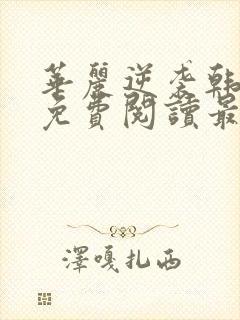 華麗逆袭韩
免費閱讀最
澤嘎扎西